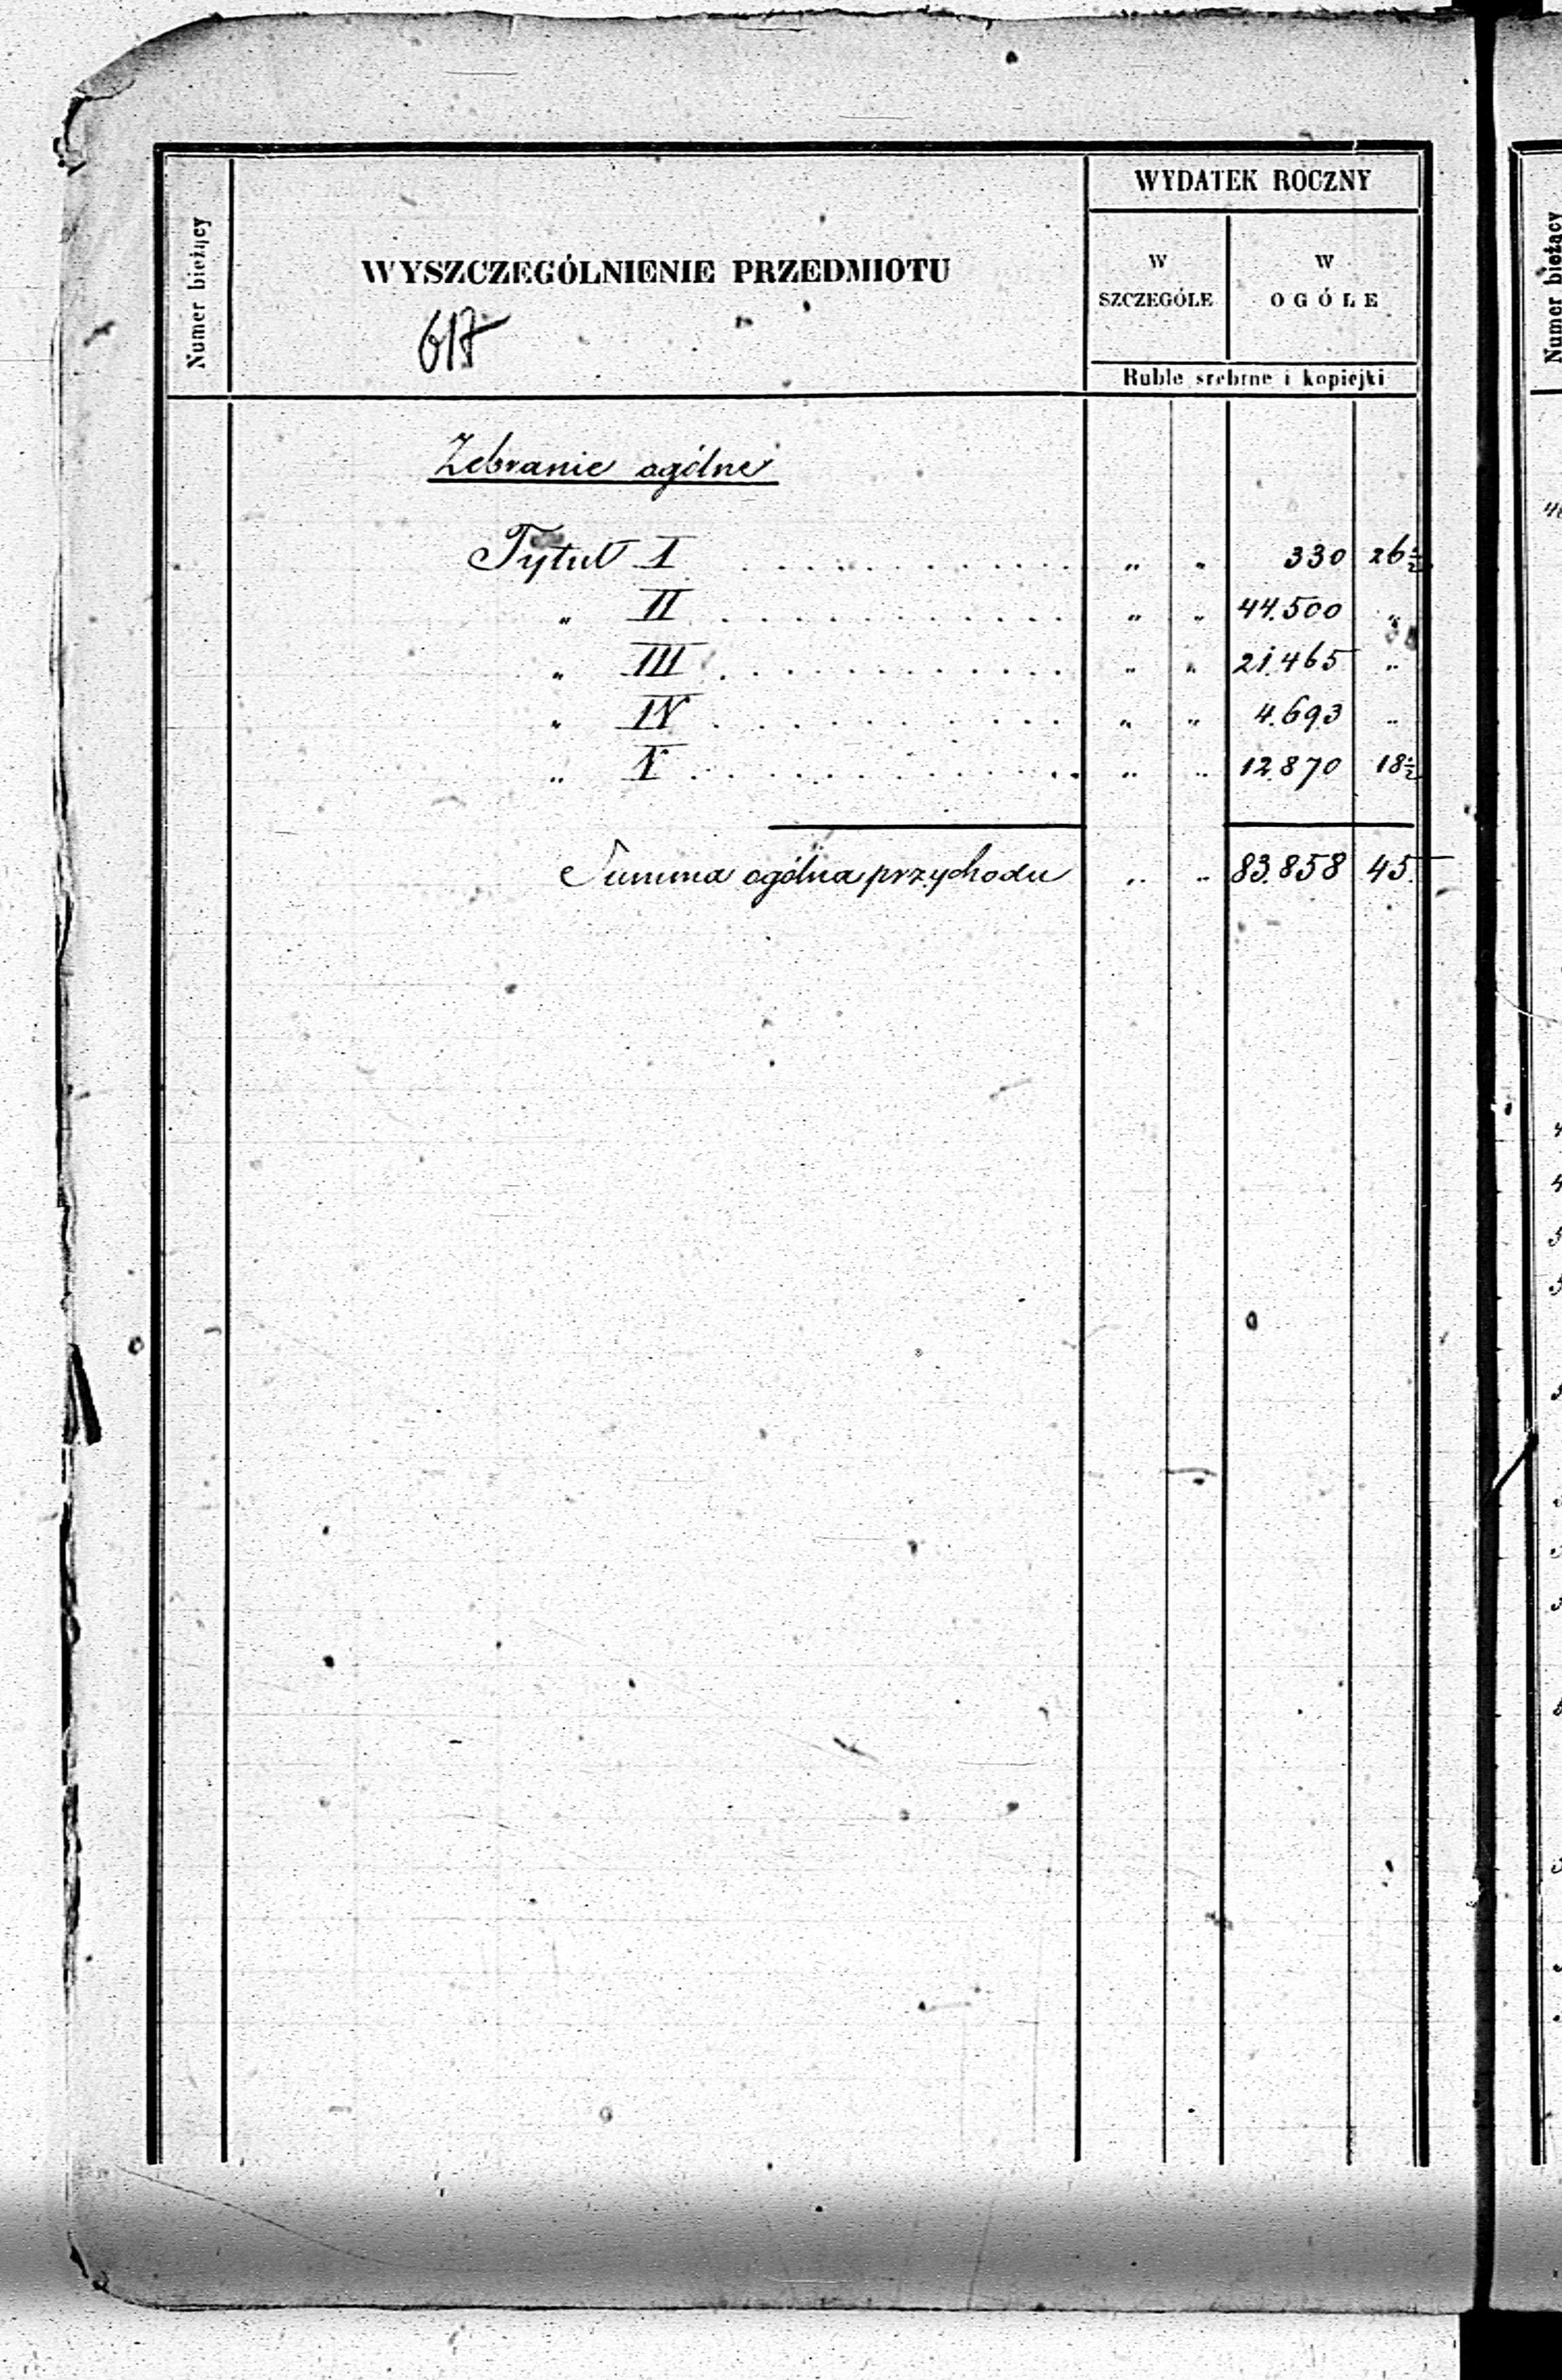 Numer bieżący
WYSZCZEGÓLNIENIE PRZEDMIOTU
617
WYDATEK ROCZNY
W SZCZEGÓLE
W OGÓLE
Ruble srebrne i kopiejki
Zebranie ogólne
Tytuł I . . . . . . . . . . . . „ „ 330 26½
„ II . . . . . . . . . . . . „ „ 44.500 „
„ III . . . . . . . . . . . . „ „ 21.465 „
„ IV . . . . . . . . . . . . „ „ 4.693 „
„ V . . . . . . . . . . . . „ „ 12.870 18½
Summa ogólna przychodu „ „ 83.858 45
Numer bieżący